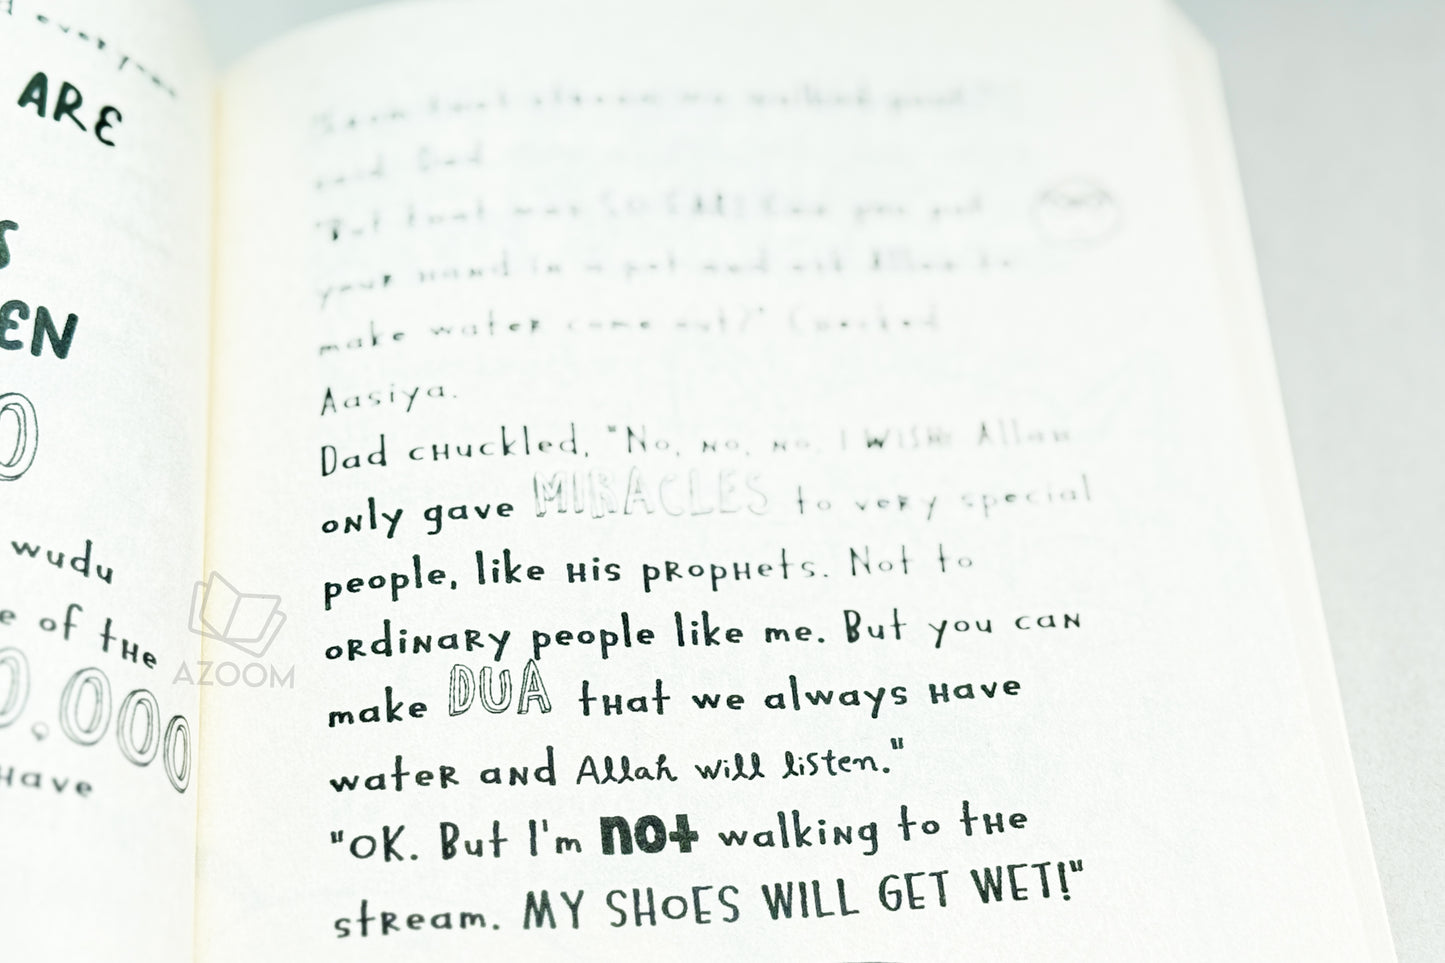 everyone
ARE
EN
wudu
e of the
0.000
Have
said Dad.
"But that was SO FAR! Can you put
your hand in a pot and ask Allah to
make water come out?" I asked
Aasiya.
Dad chuckled, "No, no, no, I wish Allah
only gave MIRACLES to very special
people, like His prophets. Not to
ordinary people like me. But you can
make DUA that we always have
water and Allah will listen."
"OK. But I'm not walking to the
stream. MY SHOES WILL GET WET!"
AZOOM